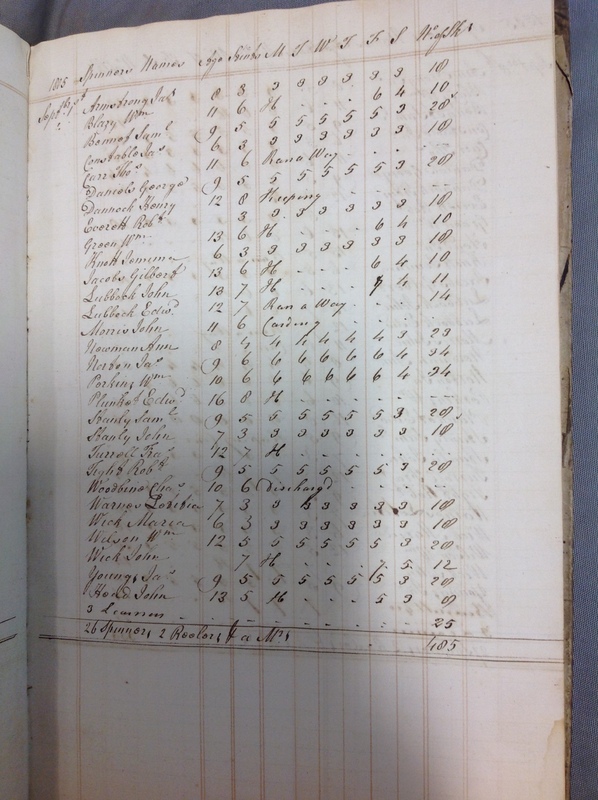 1805 Spinners Names Age Stints M T W T F S Wigsths
Septbr 7th Armstrong Jas 8 3 3 3 3 3 3 3 18
2 Blazy Wm 11 6 H - - - 6 4 10
Bonnot Saml 9 5 5 5 5 5 5 3 28
Constable Jas 6 3 3 3 3 3 3 3 18
Carr Thos 11 6 Ran a Way - - -
Daniels George 9 5 5 5 5 5 5 3 28
Dannock Henry 12 8 Heeping - - - -
Everett Robt - 3 3 3 3 3 3 3 18
Green Wm 13 6 H - - - 6 4 10
Knott Jemima 6 3 3 3 3 3 3 3 18
Jacobs Gilbert 13 6 H - - - 6 4 10
Lubbock John 13 7 H - - - 7 4 11
Lubbock Edwd 12 7 Ran a Way - - - 14
Morris John 11 6 Carding - - -
Newman Ann 8 4 4 4 4 4 4 3 23
Norton Jas 9 6 6 6 6 6 6 4 34
Perkins Wm 10 6 6 6 6 6 6 4 34
Plunket Edwd 16 8 H - - - - - -
Stanly Saml 9 5 5 5 5 5 5 3 28
Stanly John 7 3 3 3 3 3 3 3 18
Turrell Fras 12 7 H - - - - - -
Tight Robt 9 5 5 5 5 5 5 3 28
Woodbine Chas 10 6 Dischargd - - - -
Warnes Loritia 7 3 3 3 3 3 3 3 18
Wick Maria 6 3 3 3 3 3 3 3 18
Wilson Wm 12 5 5 5 5 5 5 3 28
Wick John 7 H - - - 7 5 12
Youngs Jas 9 5 5 5 5 5 5 3 28
Hond John 13 5 H - - - 5 3 8
3 Learners - - - - - - - - 25
26 Spinners 2 Reelers & a Mrs - - 485